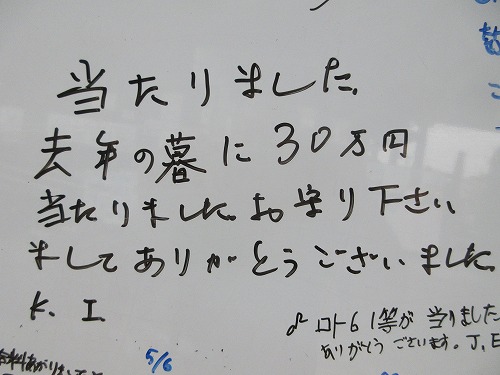 当たりました。
去年の暮に30万円
当たりました。お守り下さい
ましてありがとうございました。
K. I.
ロト6 1等が当りました
ありがとうございます。J,E
5/6